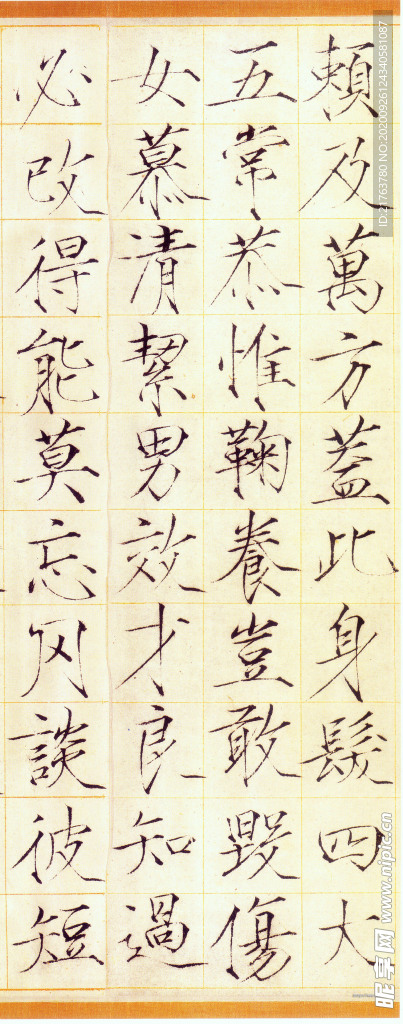 頼及萬方蓋此身髮四大
五常恭惟鞠養豈敢毀傷
女慕清絜男效才良知過
必改得能莫忘罔談彼短
昵享网 www.nipic.cn
ID:21763780 NO:20200926124340581087